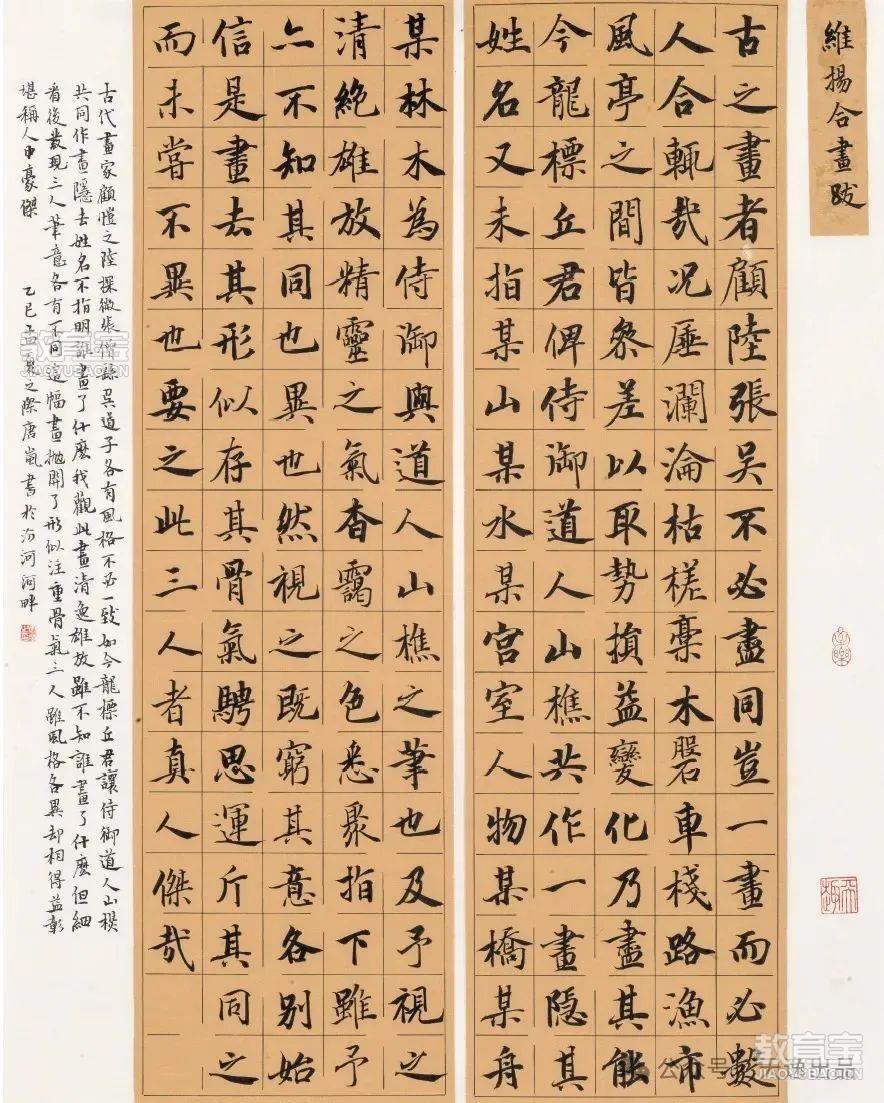 維揚合畫跋
古之畫者顧陸張吳不必盡同豈一畫而必數
人合輒哉况厜瀾淪枯槎槀木磐車棧路漁市
風亭之間皆叅差以取勢損益變化乃盡其能
今龍標丘君俾侍御道人山樵共作一畫隱其
姓名又未指某山某水某宮室人物某橋某舟
某林木為侍御與道人山樵之筆也及予視之
清絶雄放精靈之氣杳靄之色悉聚指下雖予
亦不知其同也異也然視之既窮其意各別始
信是畫去其形似存其骨氣騁思運斤其同之
而未嘗不異也要之此三人者真人傑哉
古代畫家顧愷之陸探微張僧繇吳道子各有風格不必一致如今龍標丘君讓侍御道人山樵
共同作畫隱去姓名不指明誰畫了什麽我觀此畫清逸雄放雖不知誰畫了什麽但細
看後發現三人筆意各有不同這幅畫拋開了形似注重骨氣三人雖風格各異却相得益彰
堪稱人中豪傑 乙巳孟夏之際唐嵐書於汾河河畔
教育宝
JIAOYUBAO.CN
公众号
教育宝
JIAOYUBAO.CN